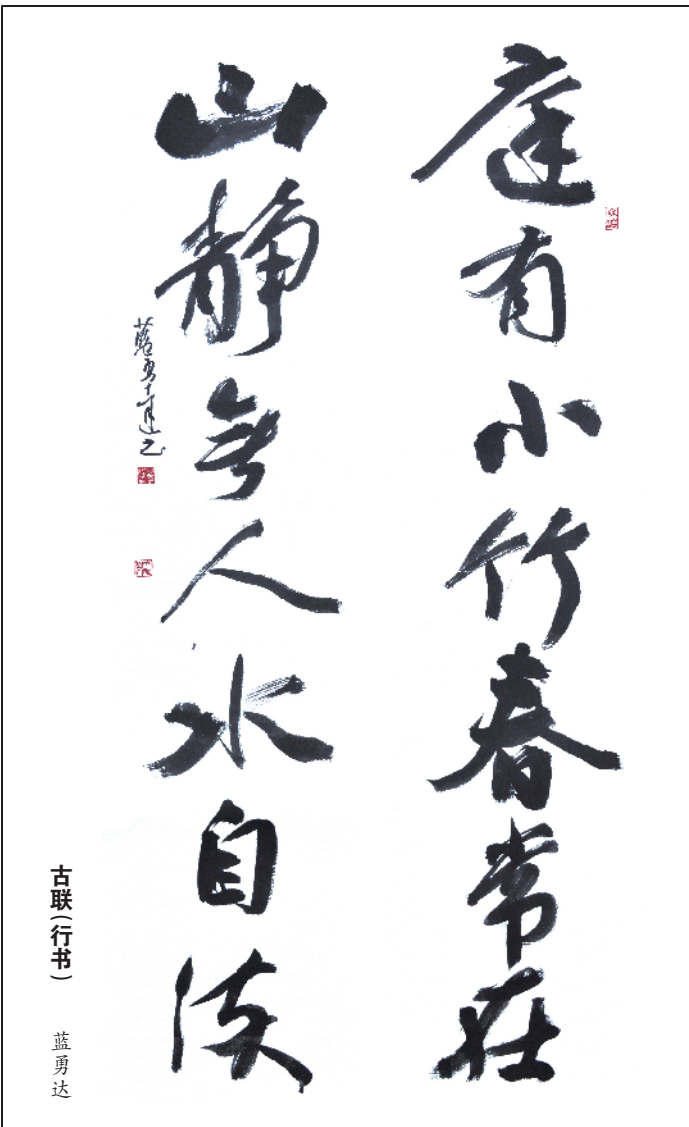 庭有小竹春常在
山静無人水自流
藍勇達
古联（行书）
蓝勇达